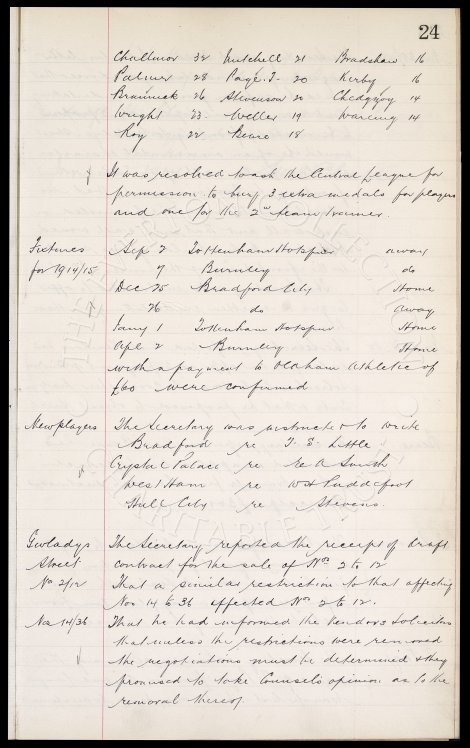 24
Challinor 32 Mitchell 21 Bradshaw 16
Palmer 28 Page. T. 20 Kirby 16
Brannick 26 Stevenson 20 Chedgzoy 14
Wright 23 Weller 19 Wareing 14
Roy 22 Beare 18
It was resolved to ask the Central League for
permission to buy 3 extra medals for players
and one for the 2nd team trainer.
Fixtures Sep 2 Tottenham Hotspur away
for 1914/15 7 Burnley do
Dec 25 Bradford City Home
26 do away
Jany 1 Tottenham Hotspur Home
Apl 2 Burnley Home
with a payment to Oldham Athletic of
£60 were confirmed
New players The Secretary was instructed to write
Bradford re T. E. Little
Crystal Palace re Re A Smith
West Ham re W H Puddefoot
Hull City re Stevens.
Gwladys The Secretary reported the receipt of Draft
Street contract for the sale of Nos 2 to 12
No 2/12 That a similar restriction to that affecting
Nos 14 to 36 affected Nos 2 to 12.
Nos 14/36 That he had informed the Vendors Solicitors
that unless the restrictions were removed
the negotiations must be determined & they
promised to take Counsel's opinion as to the
removal thereof.